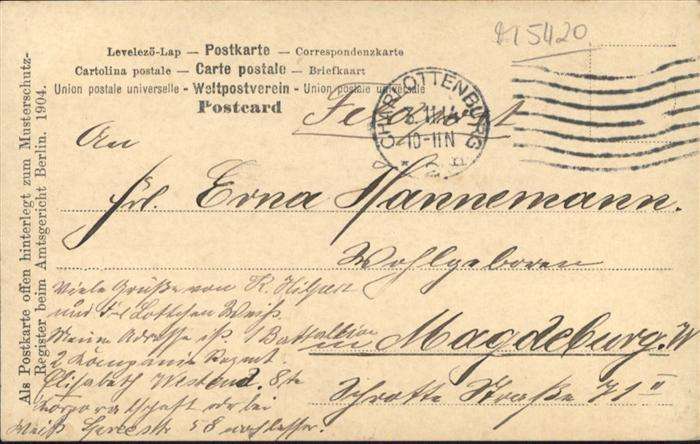 M5420
Levelező-Lap — Postkarte — Correspondenzkarte
Cartolina postale — Carte postale — Briefkaart
Union postale universelle - Weltpostverein - Union postale universelle
Postcard
CHARLOTTENBURG
10-11N
An
Frl. Erna Hannemann.
Wohlgeboren
in Magdeburg. W
Schrotte Straße 71 II
Viele Grüße von K.
und Frl Lottchen Weiß
Meine Adresse ist 1 Battallion
2 Kompanie Regmt.
Elisabeth Westend. 8te
Korporalschaft oder bei
Weiß 58
Als Postkarte offen hinterlegt zum Musterschutz-
Register beim Amtsgericht Berlin. 1904.